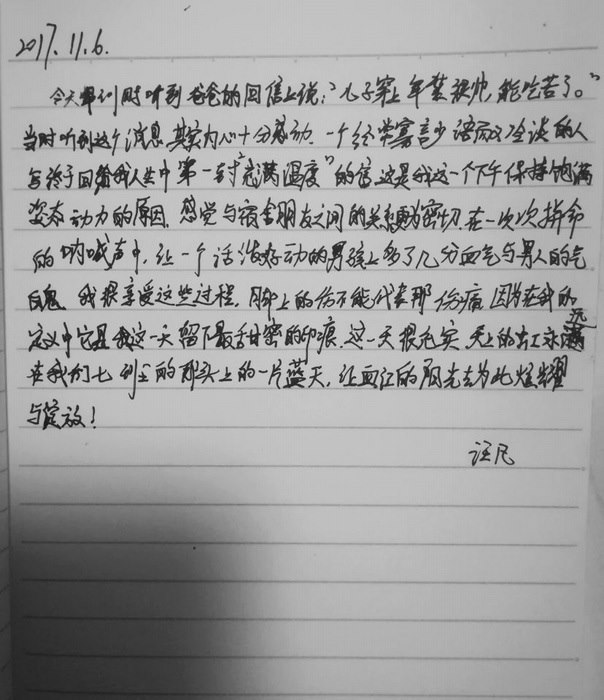 2017.11.6.
今天军训时听到爸爸的回信上说:"儿子穿上军装很帅,能吃苦了。"
当时听到这个消息,其实内心十分感动,一个经常寡言少语而又冷淡的人
写给了回给我人生中第一封"充满温度"的信,这是我这一个下午保持饱满
姿态动力的原因,感觉与宿舍朋友之间的关系更为密切,在一次次拼命
的呐喊声中,让一个活泼好动的男孩上多了几分血气与男人的气
魄,我很享受这些过程,脚上的伤不能代表那份痛,因为在我的
定义中它是我这一天留下最甜密的印痕,这一天很充实,天上的永远
在我们七列兵的那头上的一片蓝天,让血红的阳光去为此炫耀
与绽放!
汪凡